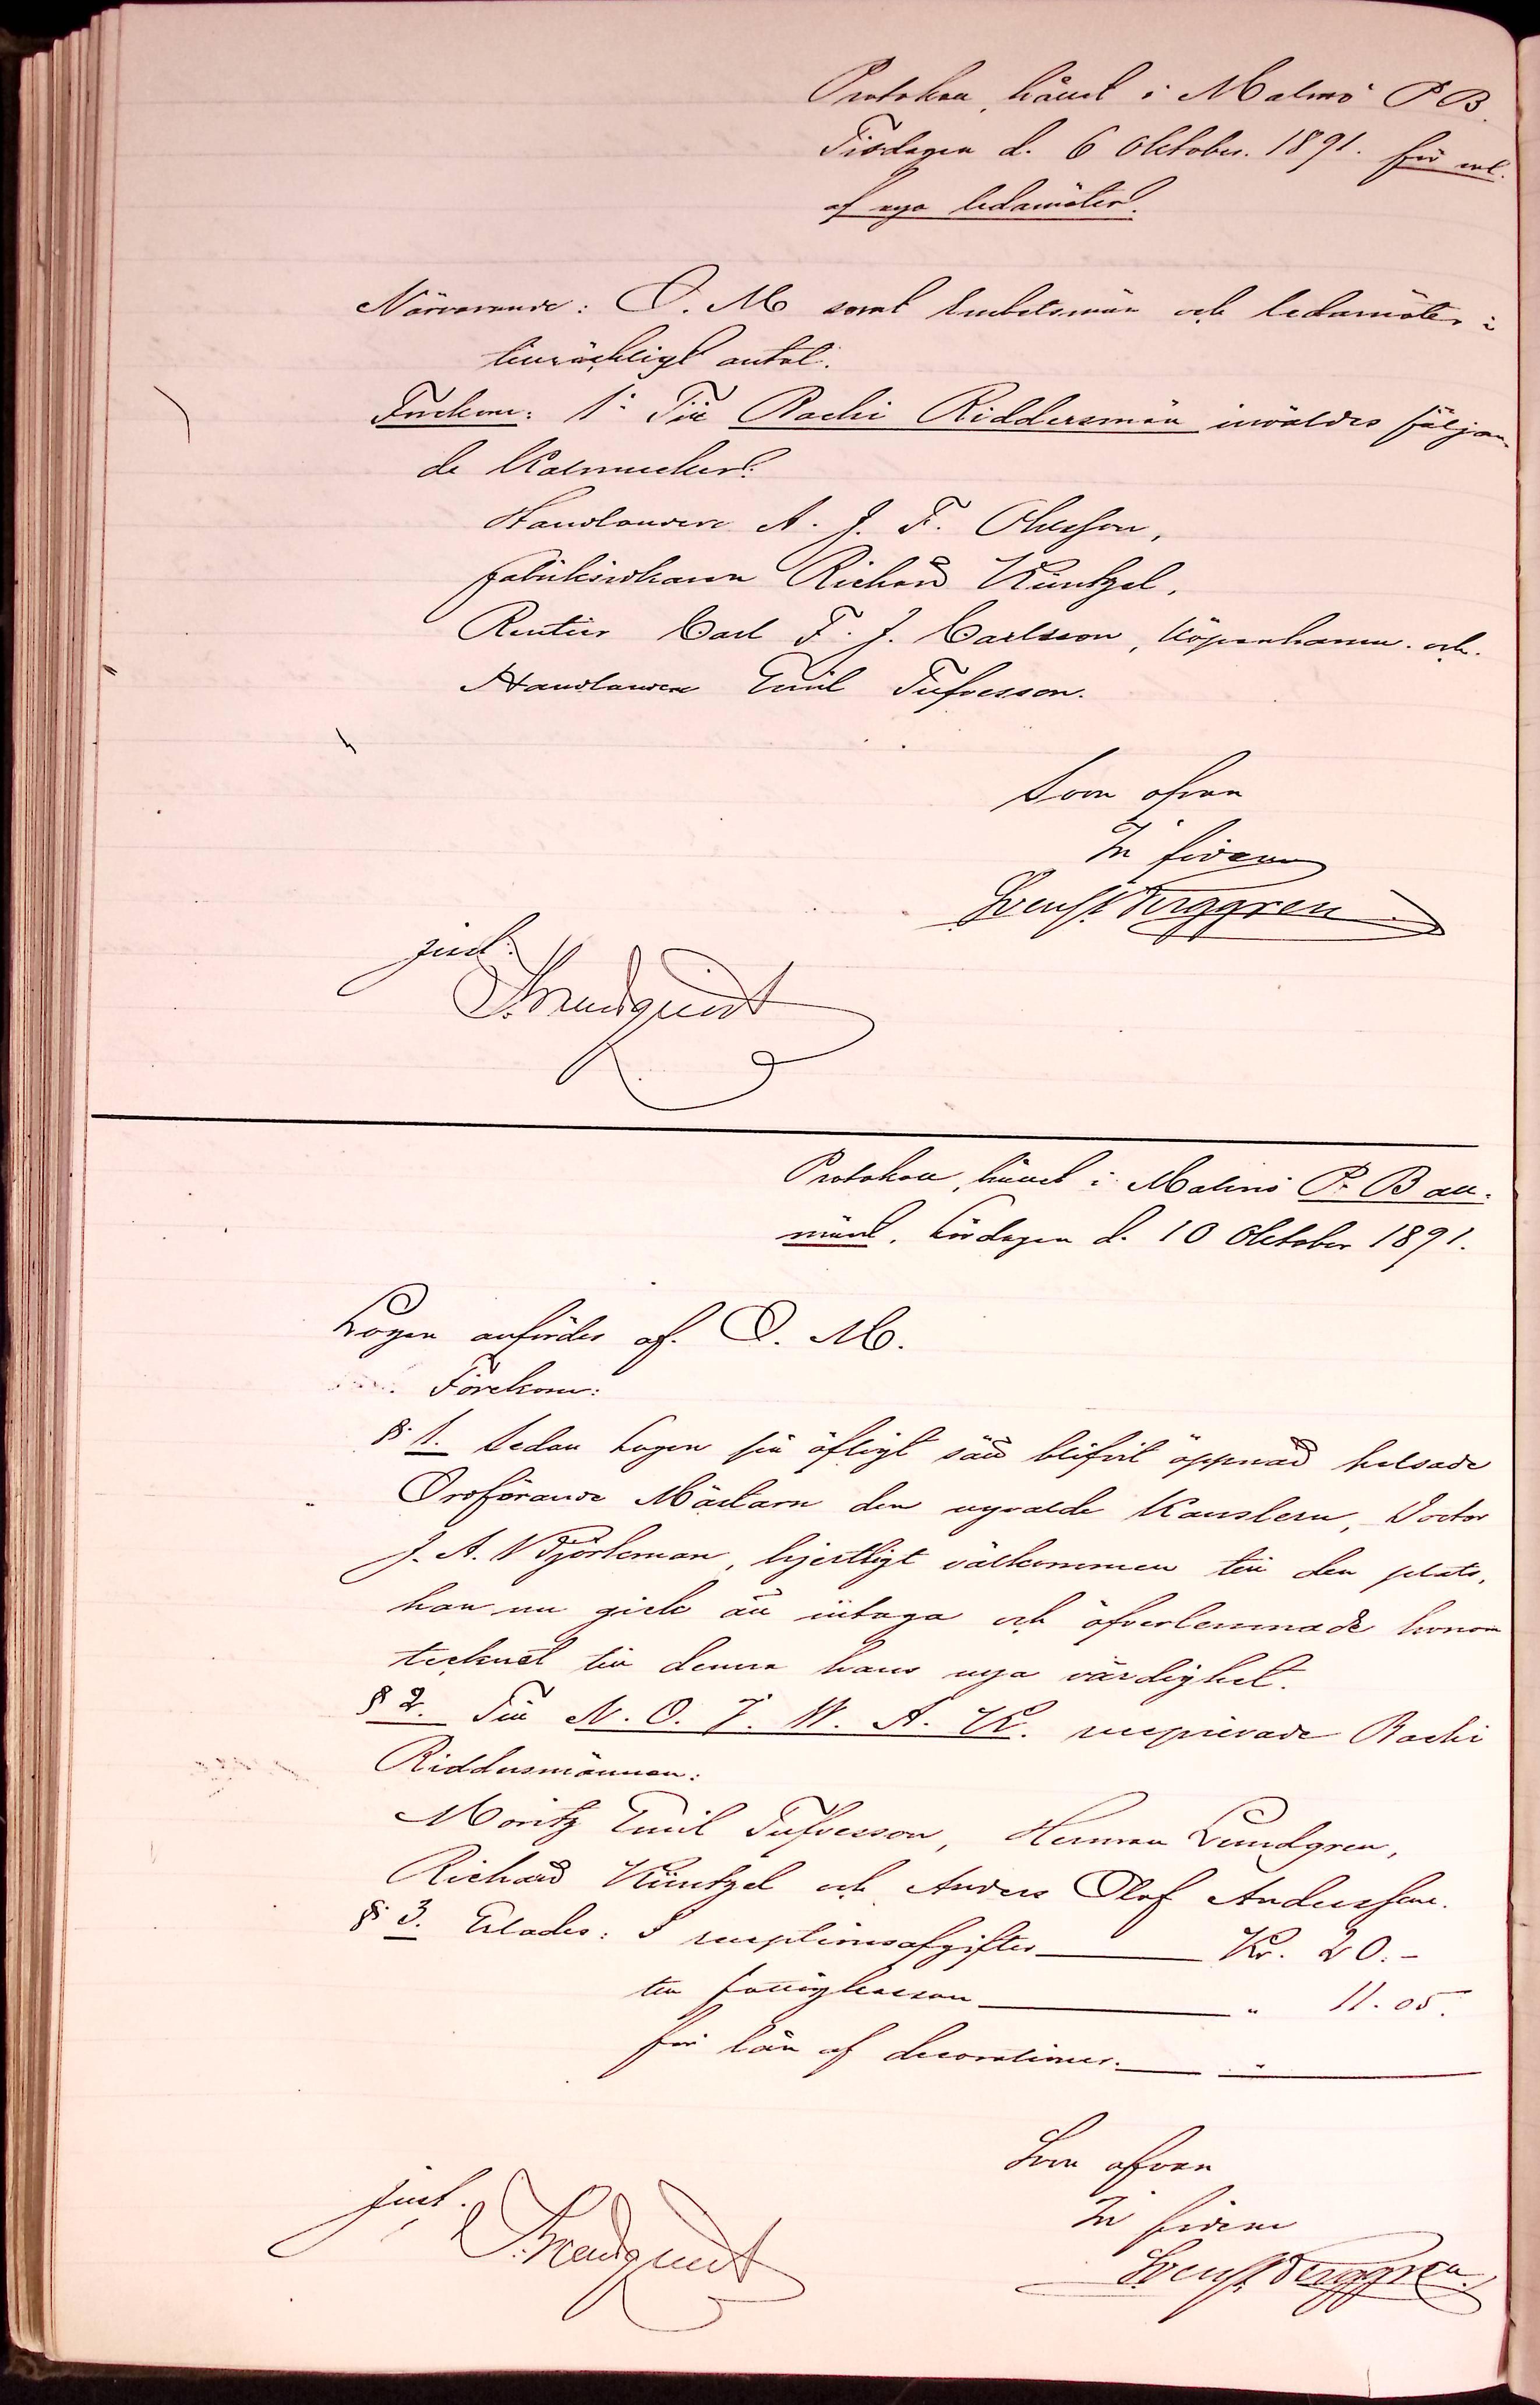 Protokoll, hållet i Malmö P B.
Tisdagen d. 6 Oktober. 1891. för val.
af nya ledamöter.
Närvarande: O. M samt Embetsmän och ledamöter i
tillräckligt antal.
Förekom: 1:o Till Bacchi Riddersmän invaldes följan-
de Kalmucker:
Handlanden A. J. F. Olsson,
fabriksidkaren Richard Küntzel,
Rentier Carl F. J. Carlsson, Köpenhamn. och.
Handlanden Emil Tufvesson.
Som ofvan
In fidem
Berggren
just.
Protokoll, hållet i Malmö P. B all-
männt, Lördagen d. 10 Oktober 1891.
Logen anfördes af. O. M.
Förekom:
§ 1. Sedan Logen på öfligt sätt blifvit öppnad helsade
Ordförande Mästarn den nyvalde Kanslern, Doctor
J. A. Björkman, hjertligt välkommen till den plats,
han nu gick att intaga och öfverlemnade honom
tecknet till denna hans nya värdighet.
§ 2. Till N. O. J. W. A. K. recipierade Bacchi
Riddersmännen:
Moritz Emil Tufvesson, Herman Lundgren,
Richard Küntzel och Anders Olof Andersson.
§ 3. Erlades: I receptionsafgifter Kr. 20.-
till fattigkassan " 11.05.
för lån af decorationer. "
Som ofvan
In fidem
Berggren
just.